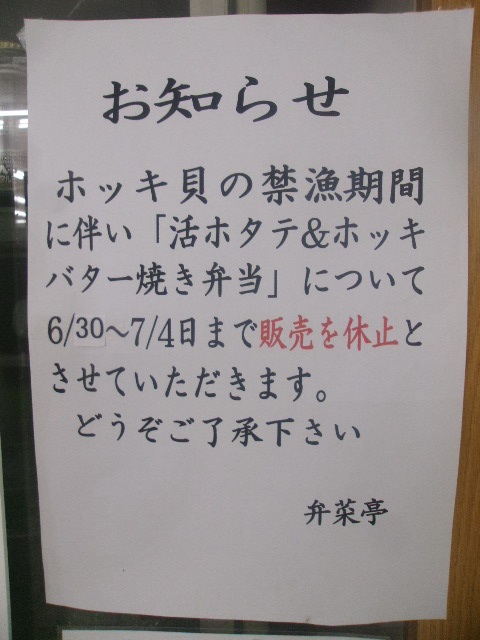 お知らせ
ホッキ貝の禁漁期間
に伴い「活ホタテ&ホッキ
バター焼き弁当」について
6/30～7/4日まで販売を休止と
させていただきます。
どうぞご了承下さい
弁菜亭